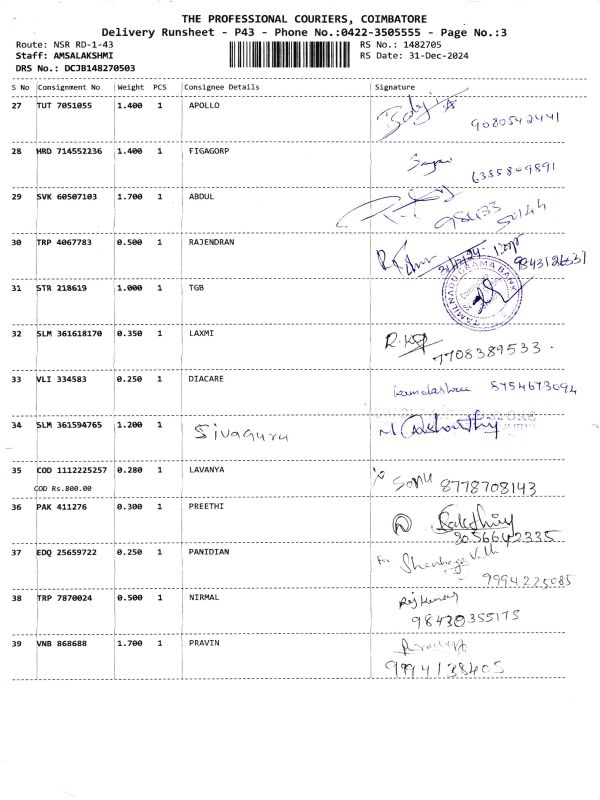 THE PROFESSIONAL COURIERS, COIMBATORE
Delivery Runsheet - P43 - Phone No.:0422-3505555 - Page No.:3
Route: NSR RD-1-43 RS No.: 1482705
Staff: AMSALAKSHMI RS Date: 31-Dec-2024
DRS No.: DCJB148270503
S No Consignment No Weight PCS Consignee Details Signature
27 TUT 7051055 1.400 1 APOLLO
9080542441
28 HRD 714552236 1.400 1 FIGAGORP
6355809891
29 SVK 60507103 1.700 1 ABDUL
30 TRP 4067783 0.500 1 RAJENDRAN
31 STR 218619 1.000 1 TGB
TAMILNADU GRAMA BANK
32 SLM 361618170 0.350 1 LAXMI
7708389533.
33 VLI 334583 0.250 1 DIACARE
8754673094
34 SLM 361594765 1.200 1 Sivaguru
35 COD 1112225257 0.280 1 LAVANYA
Sonu 8778708143
COD Rs.800.00
36 PAK 411276 0.300 1 PREETHI
Sakthiy
9056642335
37 EDQ 25659722 0.250 1 PANIDIAN
9994225085
38 TRP 7870024 0.500 1 NIRMAL
Rajkumar
98430355175
39 VNB 868688 1.700 1 PRAVIN
9994138405